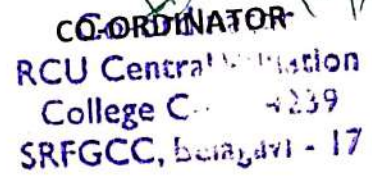 CO-ORDINATOR
RCU Central
College C
SRFGCC, Belagavi - 17